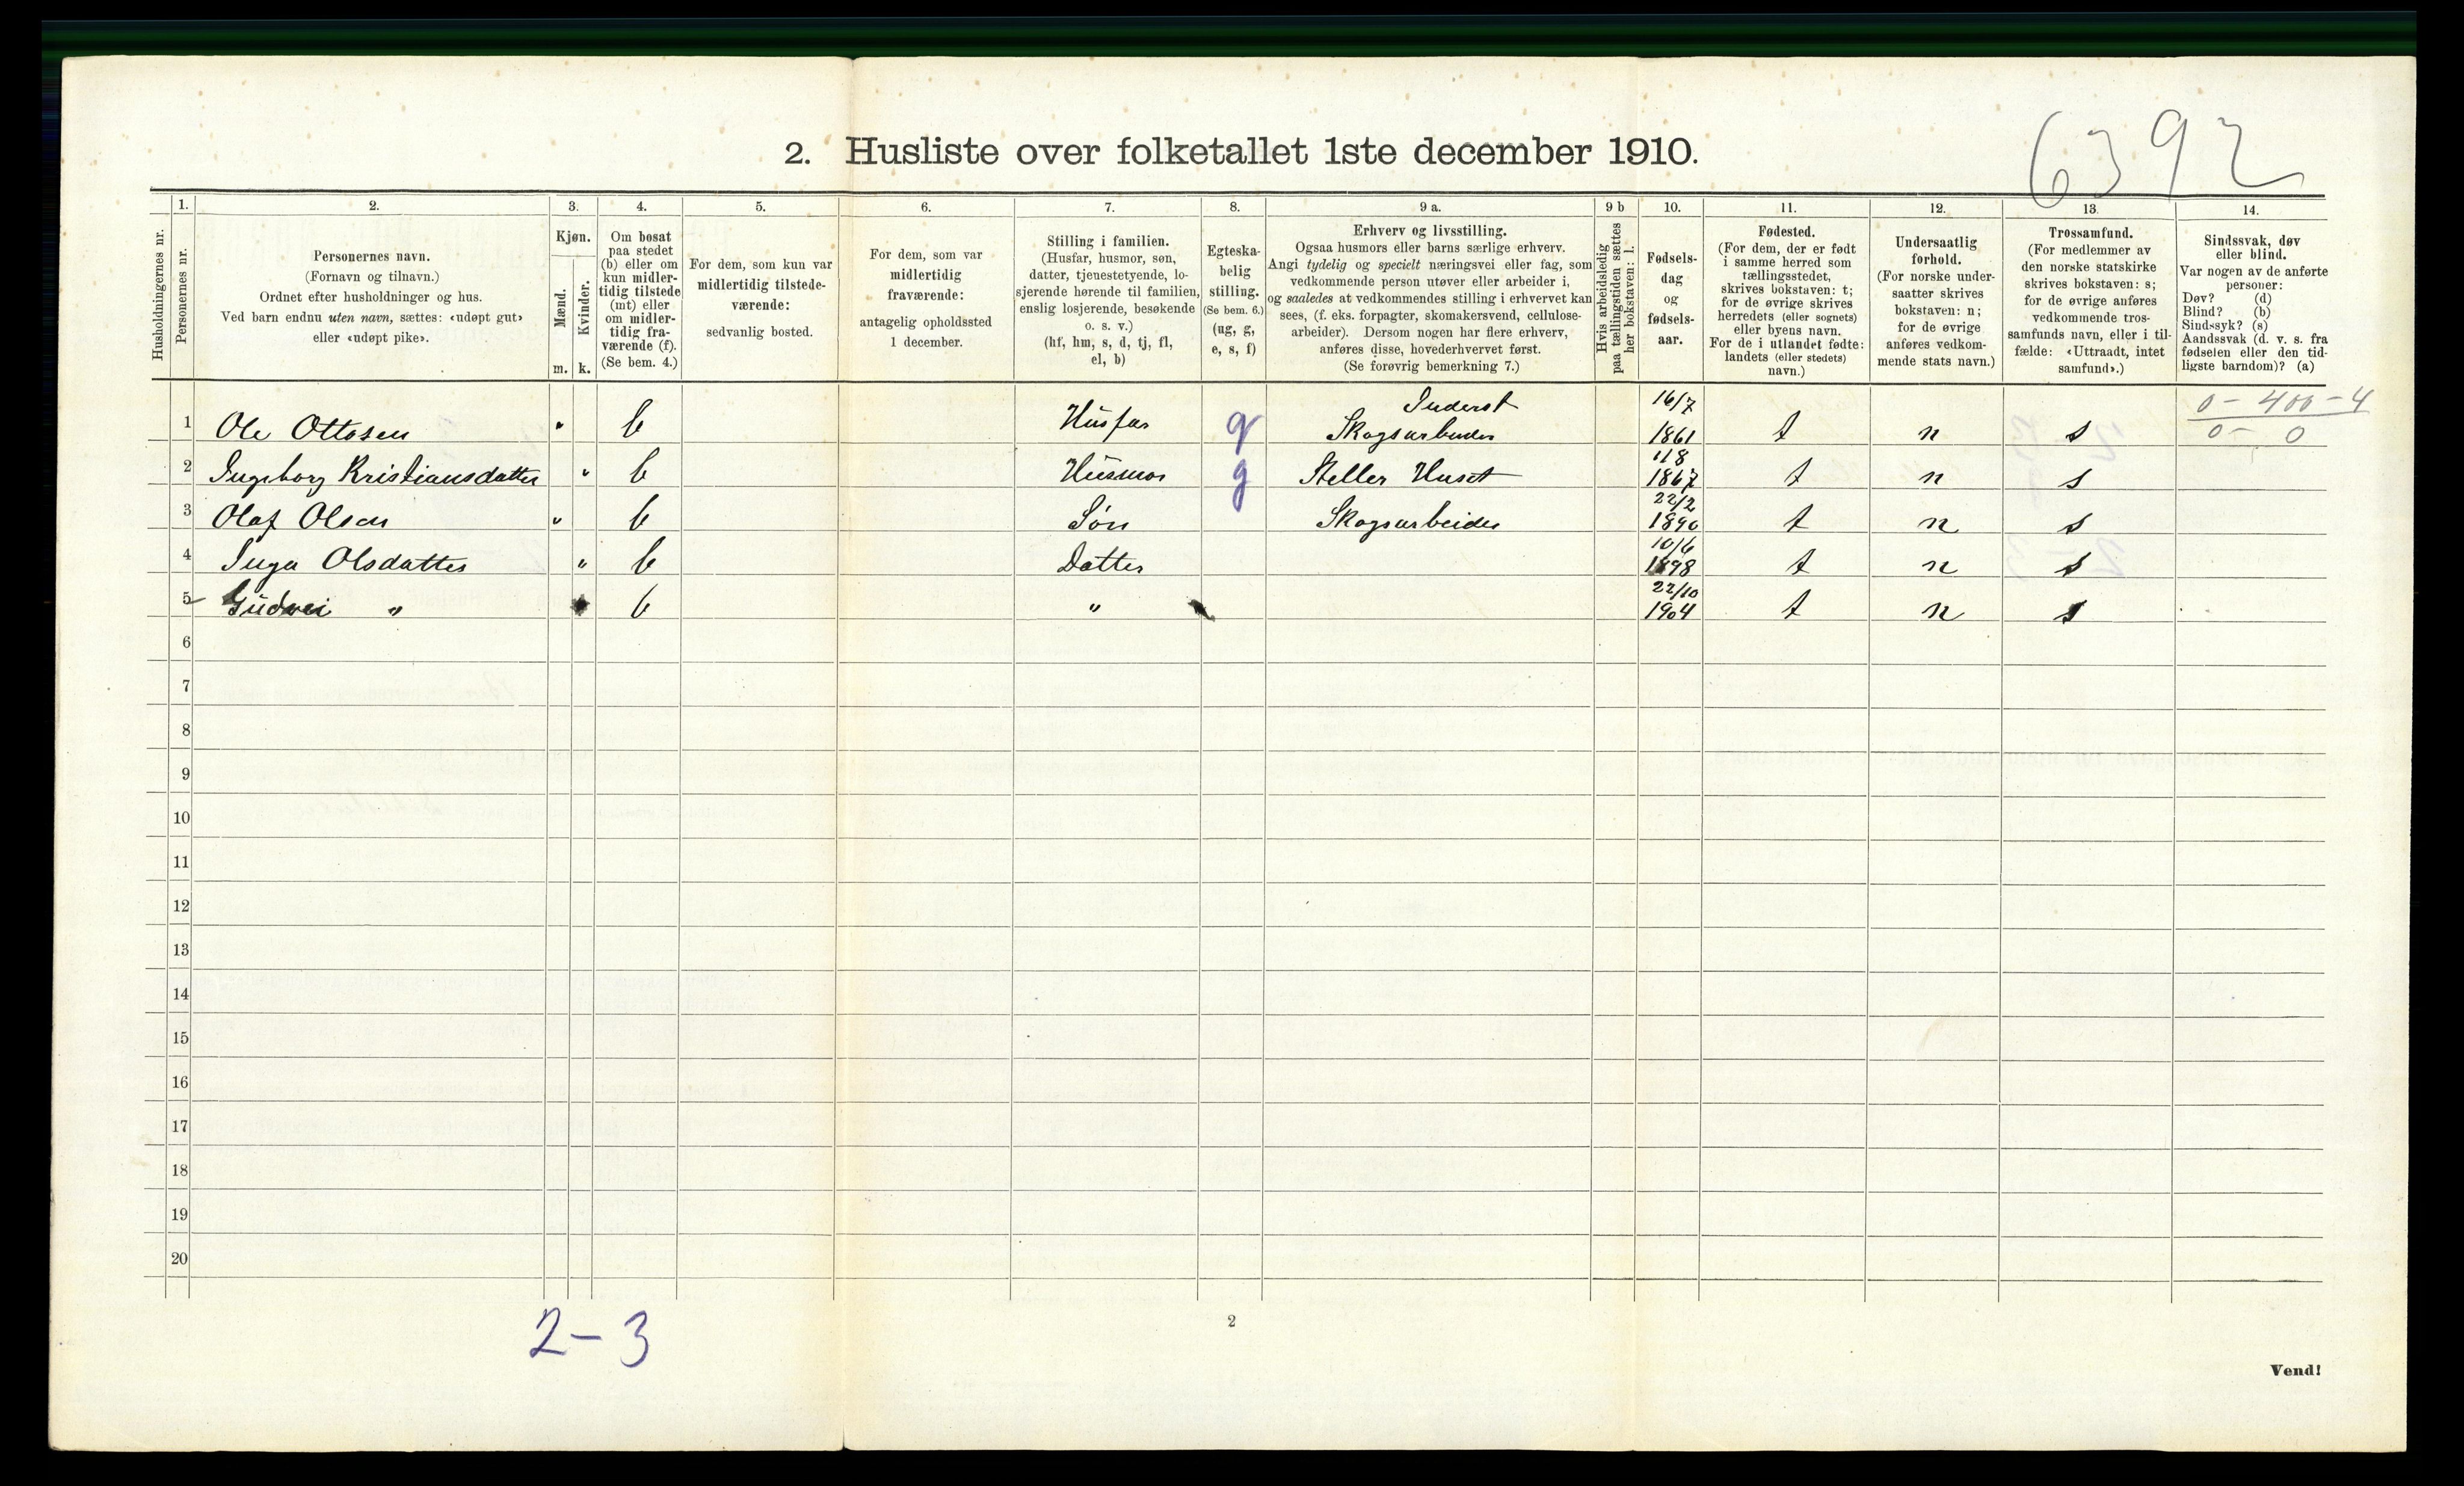 6392
2. Husliste over folketallet 1ste december 1910.
Husholdningernes nr.
1.
Personernes nr.
2.
Personernes navn.
(Fornavn og tilnavn.)
Ordnet efter husholdninger og hus.
Ved barn endnu uten navn, sættes: «udøpt gut»
eller «udøpt pike».
3.
Kjøn.
Mænd.
Kvinder.
m.
k.
4.
Om bosat
paa stedet
(b) eller om
kun midler-
tidig tilstede
(mt) eller
om midler-
tidig fra-
værende (f).
(Se bem. 4.)
5.
For dem, som kun var
midlertidig tilstede-
værende:
sedvanlig bosted.
6.
For dem, som var
midlertidig
fraværende:
antagelig opholdssted
1 december.
7.
Stilling i familien.
(Husfar, husmor, søn,
datter, tjenestetyende, lo-
sjerende hørende til familien,
enslig losjerende, besøkende
o. s. v.)
(hf, hm, s, d, tj, fl,
el, b)
8.
Egteska-
belig
stilling.
(Se bem. 6.)
(ug, g,
e, s, f)
9 a.
Erhverv og livsstilling.
Ogsaa husmors eller barns særlige erhverv.
Angi tydelig og specielt næringsvei eller fag, som
vedkommende person utøver eller arbeider i,
og saaledes at vedkommendes stilling i erhvervet kan
sees, (f. eks. forpagter, skomakersvend, cellulose-
arbeider). Dersom nogen har flere erhverv,
anføres disse, hovederhvervet først.
(Se forøvrig bemerkning 7.)
9 b
Hvis arbeidsledig
paa tællingstiden sættes
her bokstaven: l.
10.
Fødsels-
dag
og
fødsels-
aar.
11.
Fødested.
(For dem, der er født
i samme herred som
tællingsstedet,
skrives bokstaven: t;
for de øvrige skrives
herredets (eller sognets)
eller byens navn.
For de i utlandet fødte:
landets (eller stedets)
navn.)
12.
Undersaatlig
forhold.
(For norske under-
saatter skrives
bokstaven: n;
for de øvrige
anføres vedkom-
mende stats navn.)
13.
Trossamfund.
(For medlemmer av
den norske statskirke
skrives bokstaven: s;
for de øvrige anføres
vedkommende tros-
samfunds navn, eller i til-
fælde: «Uttraadt, intet
samfund».)
14.
Sindssvak, døv
eller blind.
Var nogen av de anførte
personer:
Døv? (d)
Blind? (b)
Sindssyk? (s)
Aandssvak (d. v. s. fra
fødselen eller den tid-
ligste barndom)? (a)
Inderst 16/7 0-400-4
1 Ole Ottosen " b Husfar g Skogsarbeider 1861 t n s 0- 0
11/8
2 Ingeborg Kristiansdatter " b Husmor g Steller Huset 1867 t n s
22/2
3 Olaf Olsen " b Søn Skogsarbeider 1890 t n s
10/6
4 Inga Olsdatter " b Datter 1898 t n s
22/10
5 Gudvei " b " 1904 t n s
6
7
8
9
10
11
12
13
14
15
16
17
18
19
20
2-3
2
Vend!